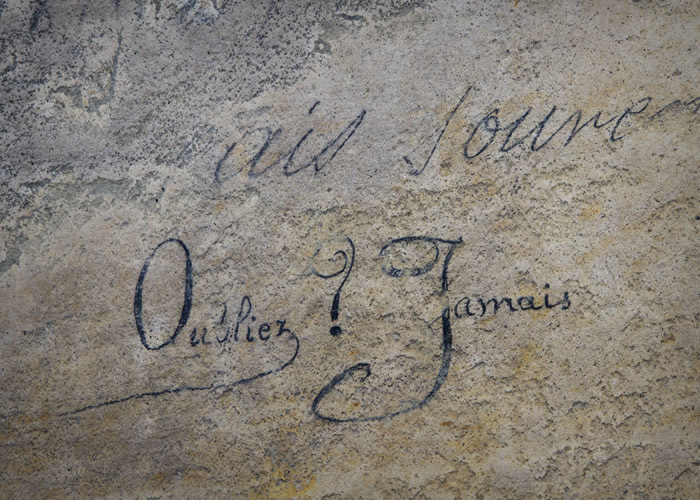 ais souve
Oubliez ? Jamais